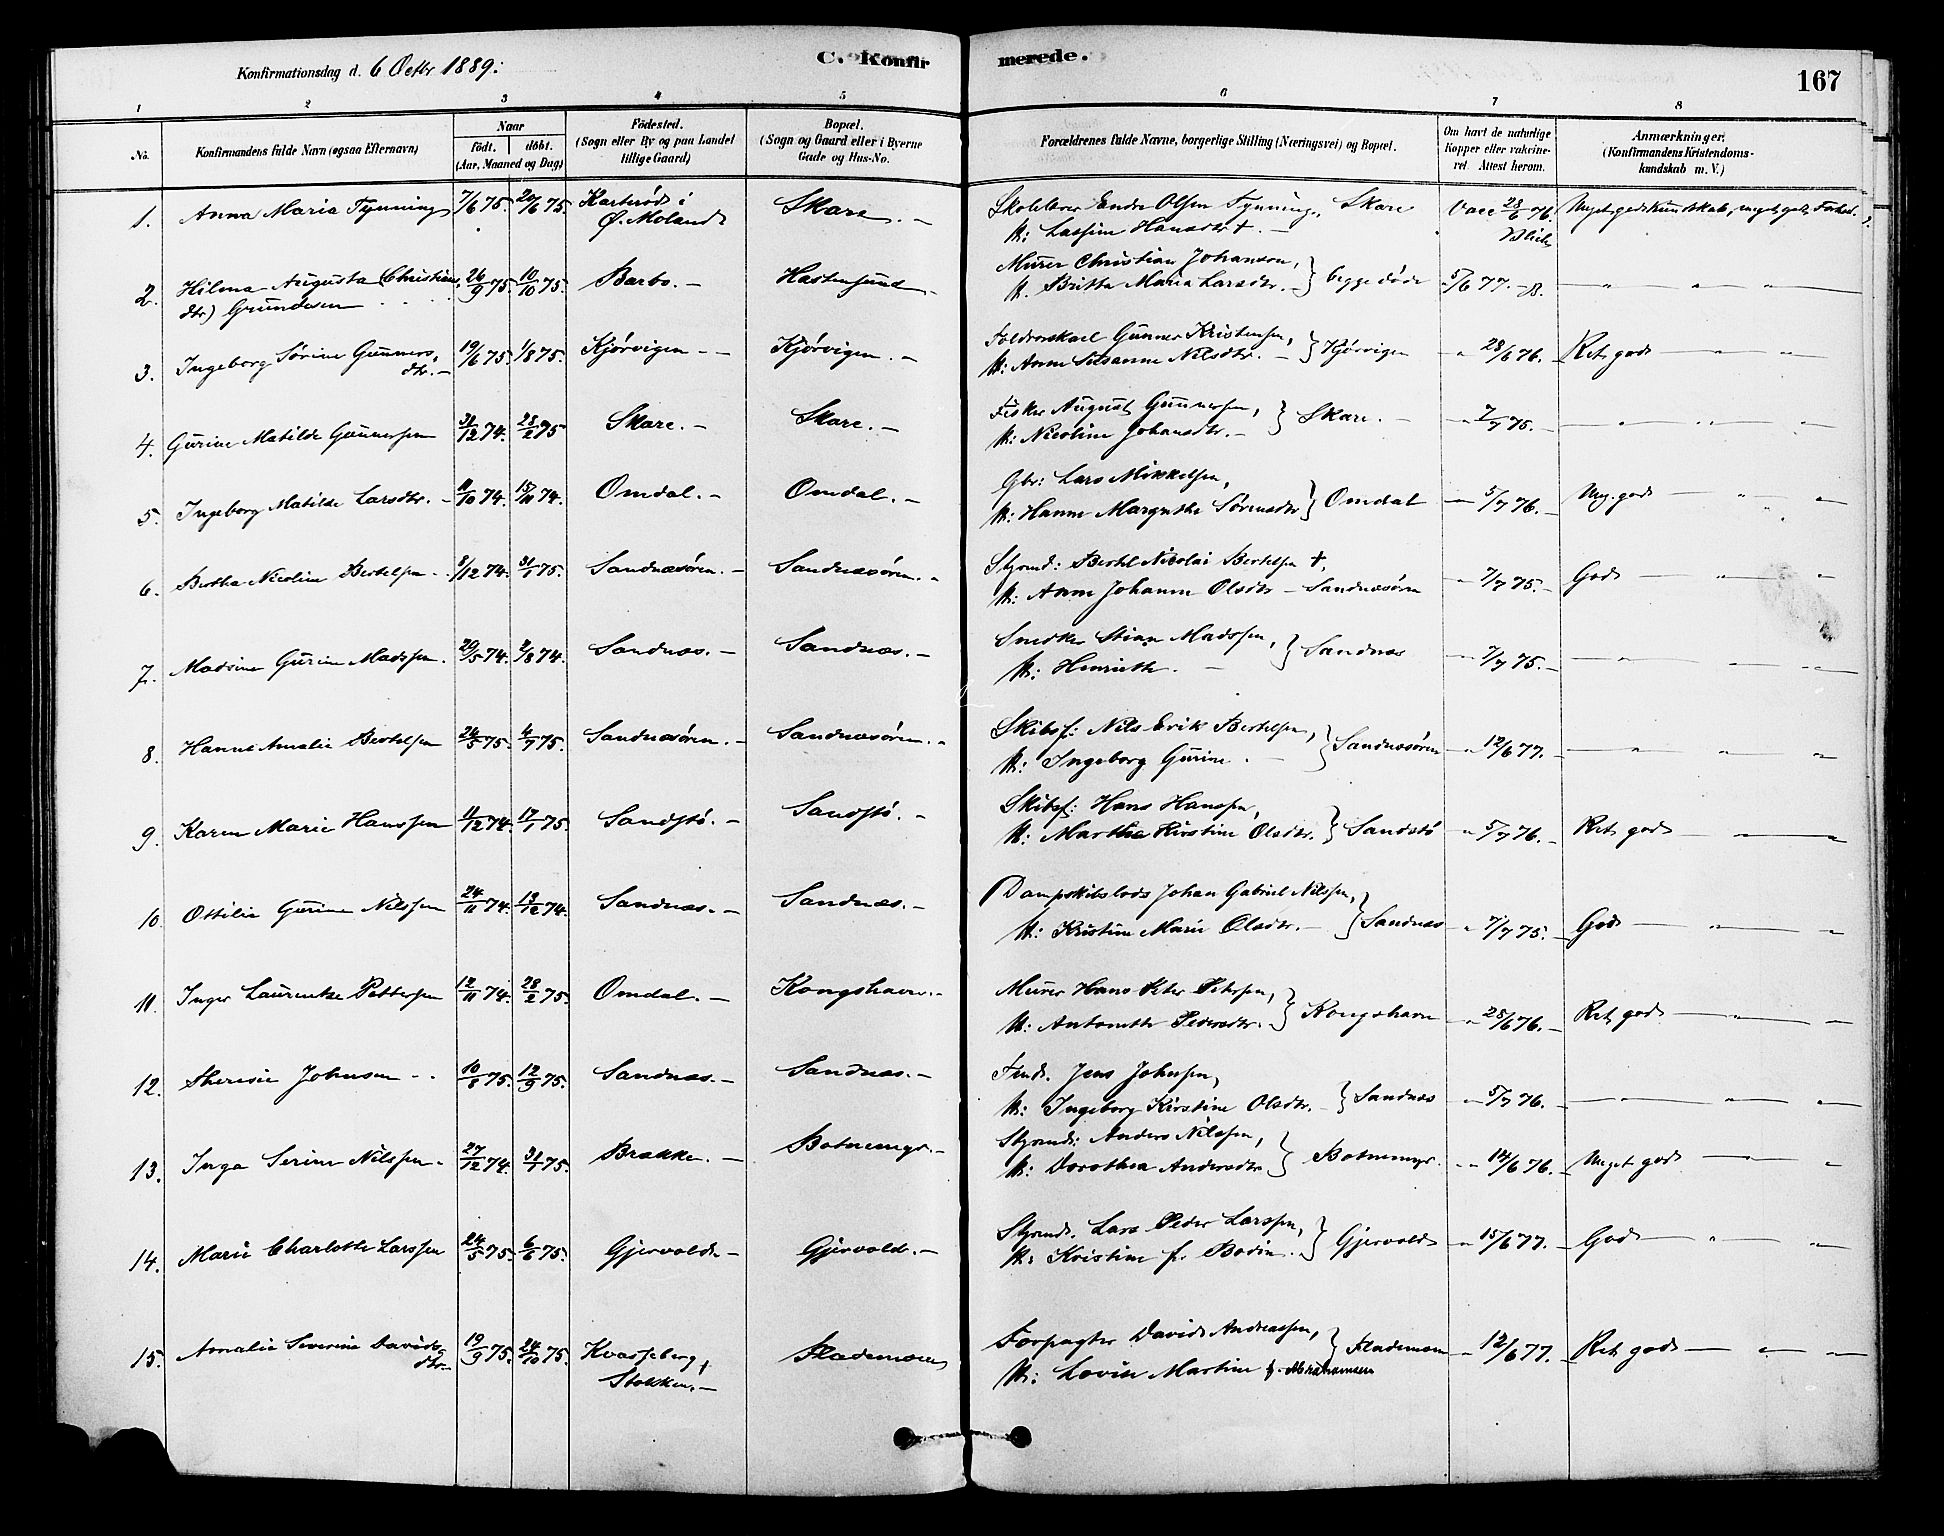 Konfirmationsdag d. 6 Octbr 1889.
C. Konfirmerede.
167
1 2 3 4 5 6 7 8
No.
Konfirmandens fulde Navn (ogsaa Efternavn)
Naar
født. døbt.
(Aar, Maaned og Dag)
Fødested.
(Sogn eller By og paa Landet tillige Gaard)
Bopæl.
(Sogn og Gaard eller i Byerne Gade og Hus-No.
Forældrenes fulde Navne, borgerlige Stilling (Næringsvei) og Bopæl.
Om havt de naturlige Kopper eller vakcineret. Attest herom.
Anmærkninger.
(Konfirmandens Kristendomskundskab m. V.)
1. Anna Maria Fynning 7/6 75. 20/6 75. Karterød i Skare. — Skolelærer Endr Olsen Fynning, Skare Vacc 28/6 76. Meget god Kundskab, meget god Forhold.
Ø. Moland H: Lassine Hansdtr +. — Blich
2. Hilma Augusta (Christians 26/9 75. 10/10 75. Barbo. — Hastensund — Murer Christian Johanson, } begge døde 5/6 77. — " " "
dtr) Grundesen H. Britta Maria Larsdtr. —
3. Ingeborg Sørine Gunners 19/6 75. 1/8 75. Kjørvigen — — Kjørvigen. — Gunner Kristensen, } Kjørvigen " 28/6 76. Ret god — " "
dtr. — H: Anne Susanne Nilsdtr. —
4. Gurine Matilde Gunnersen 31/12 74. 28/2 75 Skare. — Skare. — Fisker August Gunnersen, } Skare. — " 7/7 75. — " " "
H: Nicoline Johansdtr. —
5. Ingeborg Matilde Larsdtr. 11/10 74. 15/11 74. Omdal. — Omdal. — Gbr: Lars Mikkelsen, } Omdal " 5/7 76. Meg. god — " "
H: Hanne Margrethe Sørensdtr
6. Bertha Nicoline Bertelsen 8/12 74. 31/1 75. Sandnæsøren. — Sandnæsøren. — Styrmd: Bertel Nicolai Bertelsen +, " 7/7 75. God — " "
H: Anne Johanne Olsdtr — Sandnæsøren
7. Madsine Gurine Madssen. 20/5 74. 2/8 74. Sandnæs. — Sandnæs. — Snedker Stian Madssen, } Sandnæs " 7/7 75. — " " "
H: Henriette. —
8. Hanna Amalie Bertelsen 24/5 75. 4/7 75. Sandnæsøren. — Sandnæsøren. — Skibsf: Nils Erik Bertelsen, } Sandnæsøren " 12/6 77. — " " "
H: Ingeborg Gurine. —
9. Karen Marie Hanssen 11/12 74. 17/1 75. Sandstø. — Sandstø. — Skibsf: Hans Hansen, } Sandstø " 5/7 76. Ret god — " "
H: Marthe Kirstine Olsdtr.
10. Ottilie Gurine Nilssen 24/11 74. 13/12 74. Sandnæs. — Sandnæs. — Dampskibslods Johan Gabriel Nilssen, } Sandnæs " 7/7 75. God — " "
H: Kristine Marie Olsdtr. —
11. Inger Laurentze Pettersen 12/11 74. 28/2 75. Omdal. — Kongshavn. — Murer Hans Peter Petersen, } Kongshavn " 28/6 76. Ret god — " "
H: Antonette Pedersdtr.
12. Therisie Johnsen 10/8 75. 12/9 75. Sandnæs. — Sandnæs. — Jens Johnsen, } Sandnæs " 5/7 76. — " " "
H: Ingeborg Kirstine Olsdtr. —
13. Inga Serine Nilssen. 27/12 74. 31/1 75. Brække. — Botnemyr. — Styrmd: Anders Nilssen, } Botnemyr. " 14/6 76. Meget god — "
H: Dorothea Andersdtr
14. Marie Charlotte Larssen 24/5 75. 6/6 75. Gjervold. — Gjervold. — Styrmd. Lars Peder Larssen, } Gjervold " 15/6 77. God — " "
H: Kristine f. Bodin.
15. Amalie Severine Davids 19/9 75. 24/10 75. Kvasseberg, Flademoen Forpagter David Andreassen, } Flademoen " 12/6 77. Ret god — " "
dtr. Stokken. — H: Lovise Martine f. Abrahamsen